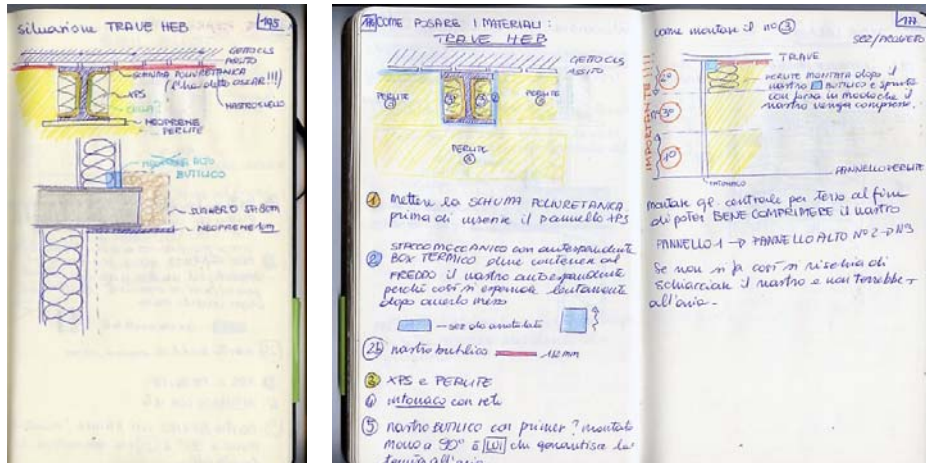 situazione TRAVE HEB
195
GETTO CLS
ASSITO
SCHIUMA POLIURETANICA
(l'ha detto OSCAR!!!)
XPS
NASTRO
NEOPRENE
PERLITE
ALTO
BUTILICO
SUGHERO
NEOPRENE
COME POSARE I MATERIALI:
TRAVE HEB
GETTO CLS
ASSITO
PERLITE
PERLITE
PERLITE
① mettere la SCHIUMA POLIURETANICA
prima di inserire il pannello XPS
② STACCO MECCANICO con autoespandente
BOX TERMICO deve contenere al
FREDDO il nastro autoespandente
perché così si espande lentamente
dopo averlo messo
sez da
2b nastro butilico mm
③ XPS e PERLITE
④ intonaco con rete
⑤ nastro BUTILICO con primer? montato
mono a 90° è LUI che garantisce la
tenuta all'aria
177
come montare il n° ③
TRAVE
PERLITE MONTATA dopo il
nastro BUTILICO e spinta
con forza in modo che il
nastro venga compresso.
IMPORTANTE!!!
2°
3°
1°
PANNELLO PERLITE
INTONACO
montare centrale per terzo al fine
di poter BENE COMPRIMERE il nastro
PANNELLO 1 → PANNELLO ALTO N°2 → N°3
Se non si fa così si rischia di
schiacciare il nastro e non terrebbe +
all'aria-